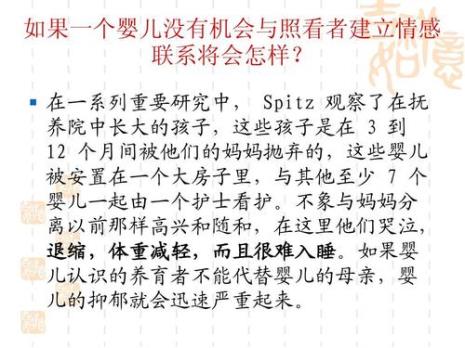 如果一个婴儿没有机会与照看者建立情感
联系将会怎样？
在一系列重要研究中， Spitz 观察了在抚
养院中长大的孩子，这些孩子是在 3 到
12 个月间被他们的妈妈抛弃的，这些婴儿
被安置在一个大房子里，与其他至少 7 个
婴儿一起由一个护士看护。不象与妈妈分
离以前那样高兴和随和，在这里他们哭泣,
退缩，体重减轻，而且很难入睡。如果婴
儿认识的养育者不能代替婴儿的母亲，婴
儿的抑郁就会迅速严重起来。